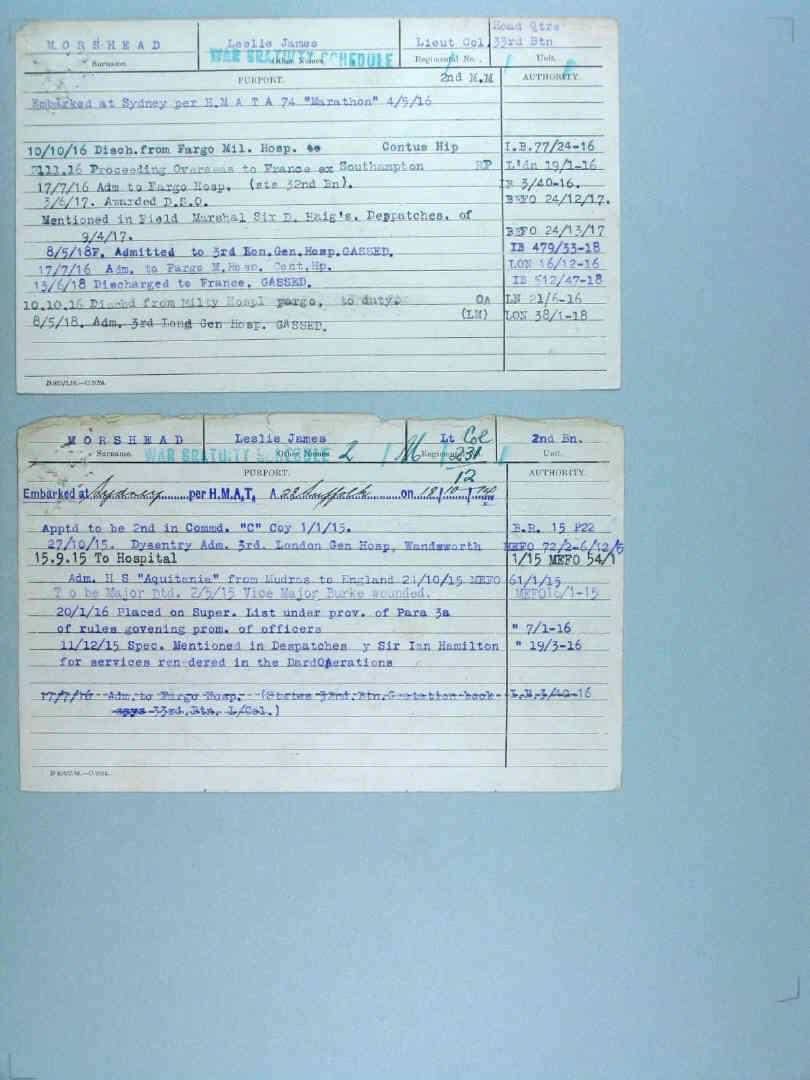 MORSHEAD Leslie James Lieut Col. Head Qtrs 33rd Btn
WAR GRATUITY SCHEDULE
Surname. Other Names Regimental No. Unit.
PURPORT. 2nd M.M AUTHORITY.
Embarked at Sydney per H.M A T A 74 "Marathon" 4/5/16
10/10/16 Disch.from Fargo Mil. Hosp. Contus Hip I.B.77/24-16
Proceeding Overseas to France ex Southampton RP L'dn 19/1-16
17/7/16 Adm to Fargo Hosp. (sts 32nd Bn). 3/40-16.
3/6/17. Awarded D.S.O. BEFO 24/12/17.
Mentioned in Field Marshal Sir D. Haig's. Despatches. of
9/4/17. BEFO 24/13/17
8/5/18F. Admitted to 3rd Lon.Gen.Hosp.GASSED. IB 479/33-18
17/7/16 Adm. to Fargo M.Hosp. Cont.Hp. LON 16/12-16
13/6/18 Discharged to France. GASSED. IB 512/47-18
10.10.16 Dischd from Milty Hospl Fargo, to duty. OA LN 21/6-16
8/5/18. Adm. 3rd Lond Gen Hosp. GASSED. (LM) LON 38/1-18
MORSHEAD Leslie James Lt Col 2nd Bn.
WAR GRATUITY SCHEDULE 2 / M 231
Surname. Other Names Regimental Unit.
PURPORT. 12 AUTHORITY.
Embarked at Sydney per H.M.A.T. A 23 Suffolk on 18/10/14
Apptd to be 2nd in Commd. "C" Coy 1/1/15. B.R. 15 P22
27/10/15. Dysentry Adm. 3rd. London Gen Hosp, Wandsworth MEFO 72/2-6/12/5
15.9.15 To Hospital 1/15 MEFO 54/1
Adm. H S "Aquitania" from Mudros to England 21/10/15 MEFO 61/1/15
T o be Major dtd. 2/5/15 Vice Major Burke wounded.
20/1/16 Placed on Super. List under prov. of Para 3a
of rules govening prom. of officers " 7/1-16
11/12/15 Spec. Mentioned in Despatches y Sir Ian Hamilton " 19/3-16
for services ren dered in the DardOperations
17/7/16 Adm. to Fargo Hosp. (States 32nd.Btn. station book I.B.3/40-16
says 33rd.Btn. L/Col.)